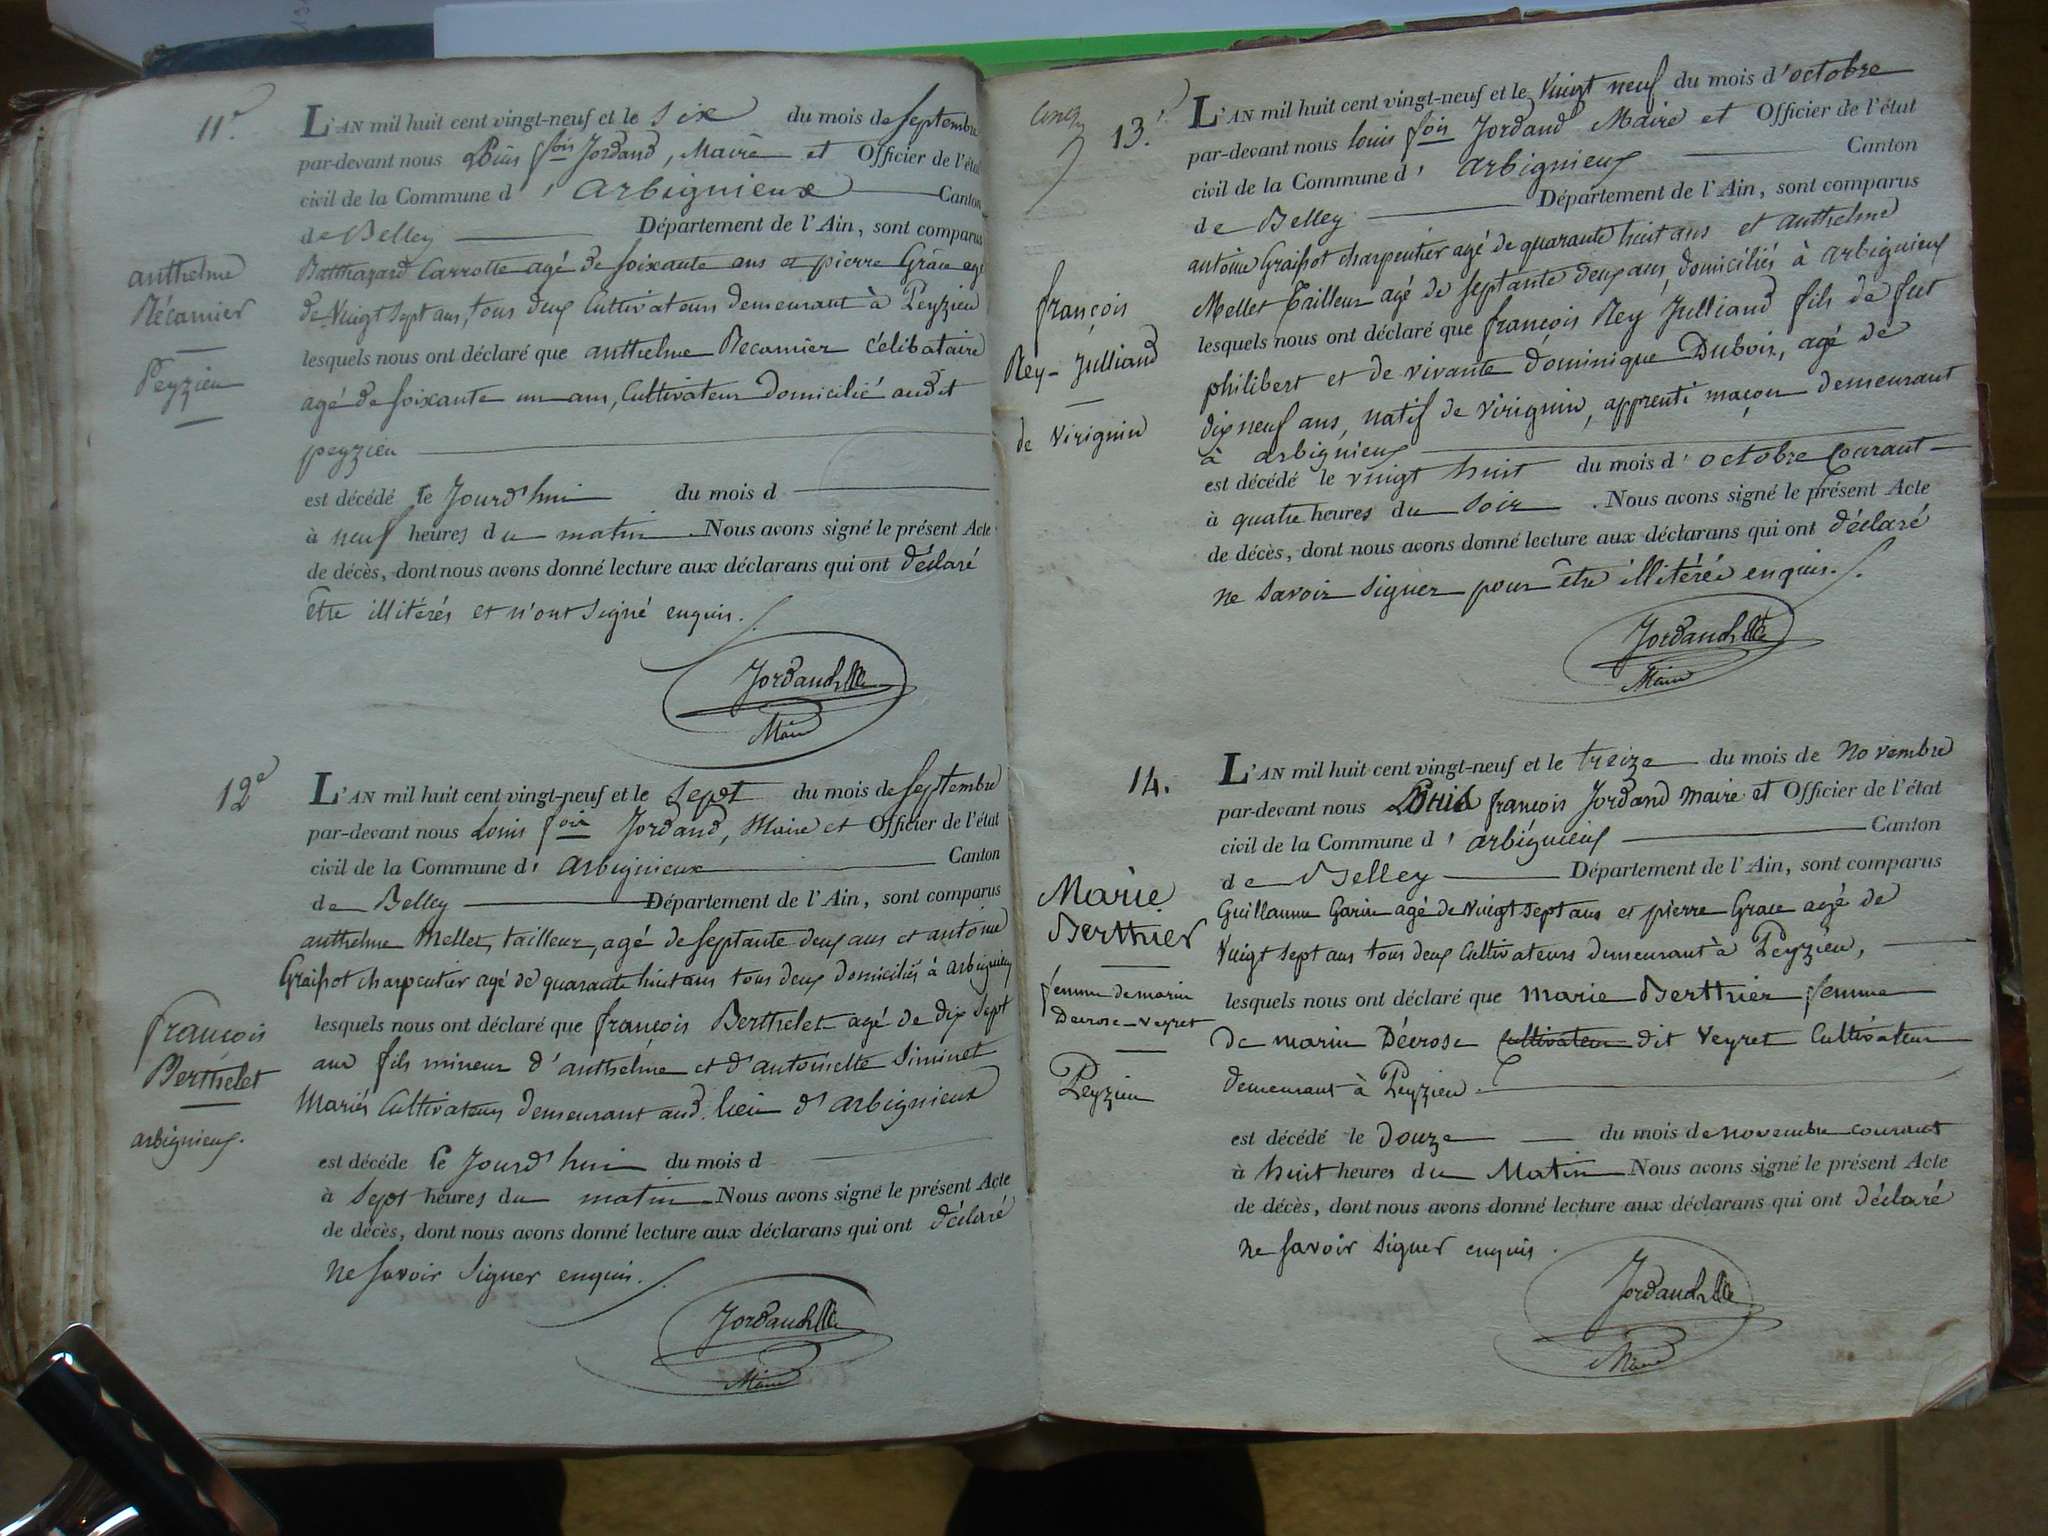 11e
anthelme
Récamier
Peyzieu
L'AN mil huit cent vingt-neuf et le six du mois de septembre
par-devant nous Louis fois Jordand, Maire et Officier de l'état
civil de la Commune d' arbignieux Canton
de Belley Département de l'Ain, sont comparus
Batthazard Carrotte agé de soixante ans et pierre Grâce agé
de Vingt sept ans, tous deux Cultivateurs demeurant à Peyzieu
lesquels nous ont déclaré que anthelme Recamier célibataire
agé de soixante un ans, Cultivateur domicilié audit
peyzieu
est décédé le Jourd'hui du mois d
à neuf heures du matin Nous avons signé le présent Acte
de décès, dont nous avons donné lecture aux déclarans qui ont déclaré
être illitérés et n'ont signé enquis.
Maire
12e
françois
Berthelet
arbignieux.
L'AN mil huit cent vingt-neuf et le sept du mois de septembre
par-devant nous Louis fois Jordand, Maire et Officier de l'état
civil de la Commune d' arbignieux Canton
de Belley Département de l'Ain, sont comparus
anthelme Mellet, tailleur, agé de septante deux ans et antoine
Graissot charpentier agé de quarante huit ans tous deux domiciliés à arbignieux
lesquels nous ont déclaré que françois Berthelet agé de dix sept
ans fils mineur d'anthelme et d'antoinette Siminet
Mariés Cultivateurs demeurant aud. lieu d'arbignieux
est décédé le Jourd'hui du mois d
à sept heures du matin Nous avons signé le présent Acte
de décès, dont nous avons donné lecture aux déclarans qui ont déclaré
ne savoir signer enquis.
Maire
13.
françois
Rey-Julliand
de Virignin
L'AN mil huit cent vingt-neuf et le Vingt neuf du mois d'octobre
par-devant nous louis fois Jordand Maire et Officier de l'état
civil de la Commune d' arbignieux Canton
de Belley Département de l'Ain, sont comparus
antoine Graissot charpentier agé de quarante huit ans et anthelme
Mellet Tailleur agé de septante deux ans, domiciliés à arbignieux
lesquels nous ont déclaré que françois Rey Julliand fils de feu
philibert et de vivante dominique Dubois, agé de
dix neuf ans, natif de virignin, apprenti maçon demeurant
à arbignieux
est décédé le vingt huit du mois d'octobre Courant
à quatre heures du soir . Nous avons signé le présent Acte
de décès, dont nous avons donné lecture aux déclarans qui ont déclaré
ne savoir signer pour être illitérés enquis.
Maire
14.
Marie
Berthier
femme de marin
Decrose-Veyret
Peyzieu
L'AN mil huit cent vingt-neuf et le treize du mois de novembre
par-devant nous Louis françois Jordand maire et Officier de l'état
civil de la Commune d' arbignieux Canton
de Belley Département de l'Ain, sont comparus
Guillaume Garin agé de Vingt sept ans et pierre Grace agé de
Vingt sept ans tous deux Cultivateurs demeurant à Peyzieu,
lesquels nous ont déclaré que marie Berthier femme
de marin Décrose cultivateur dit Veyret Cultivateur
demeurant à Peyzieu.
est décédé le douze du mois de novembre courant
à huit heures du Matin Nous avons signé le présent Acte
de décès, dont nous avons donné lecture aux déclarans qui ont déclaré
ne savoir signer enquis.
Maire